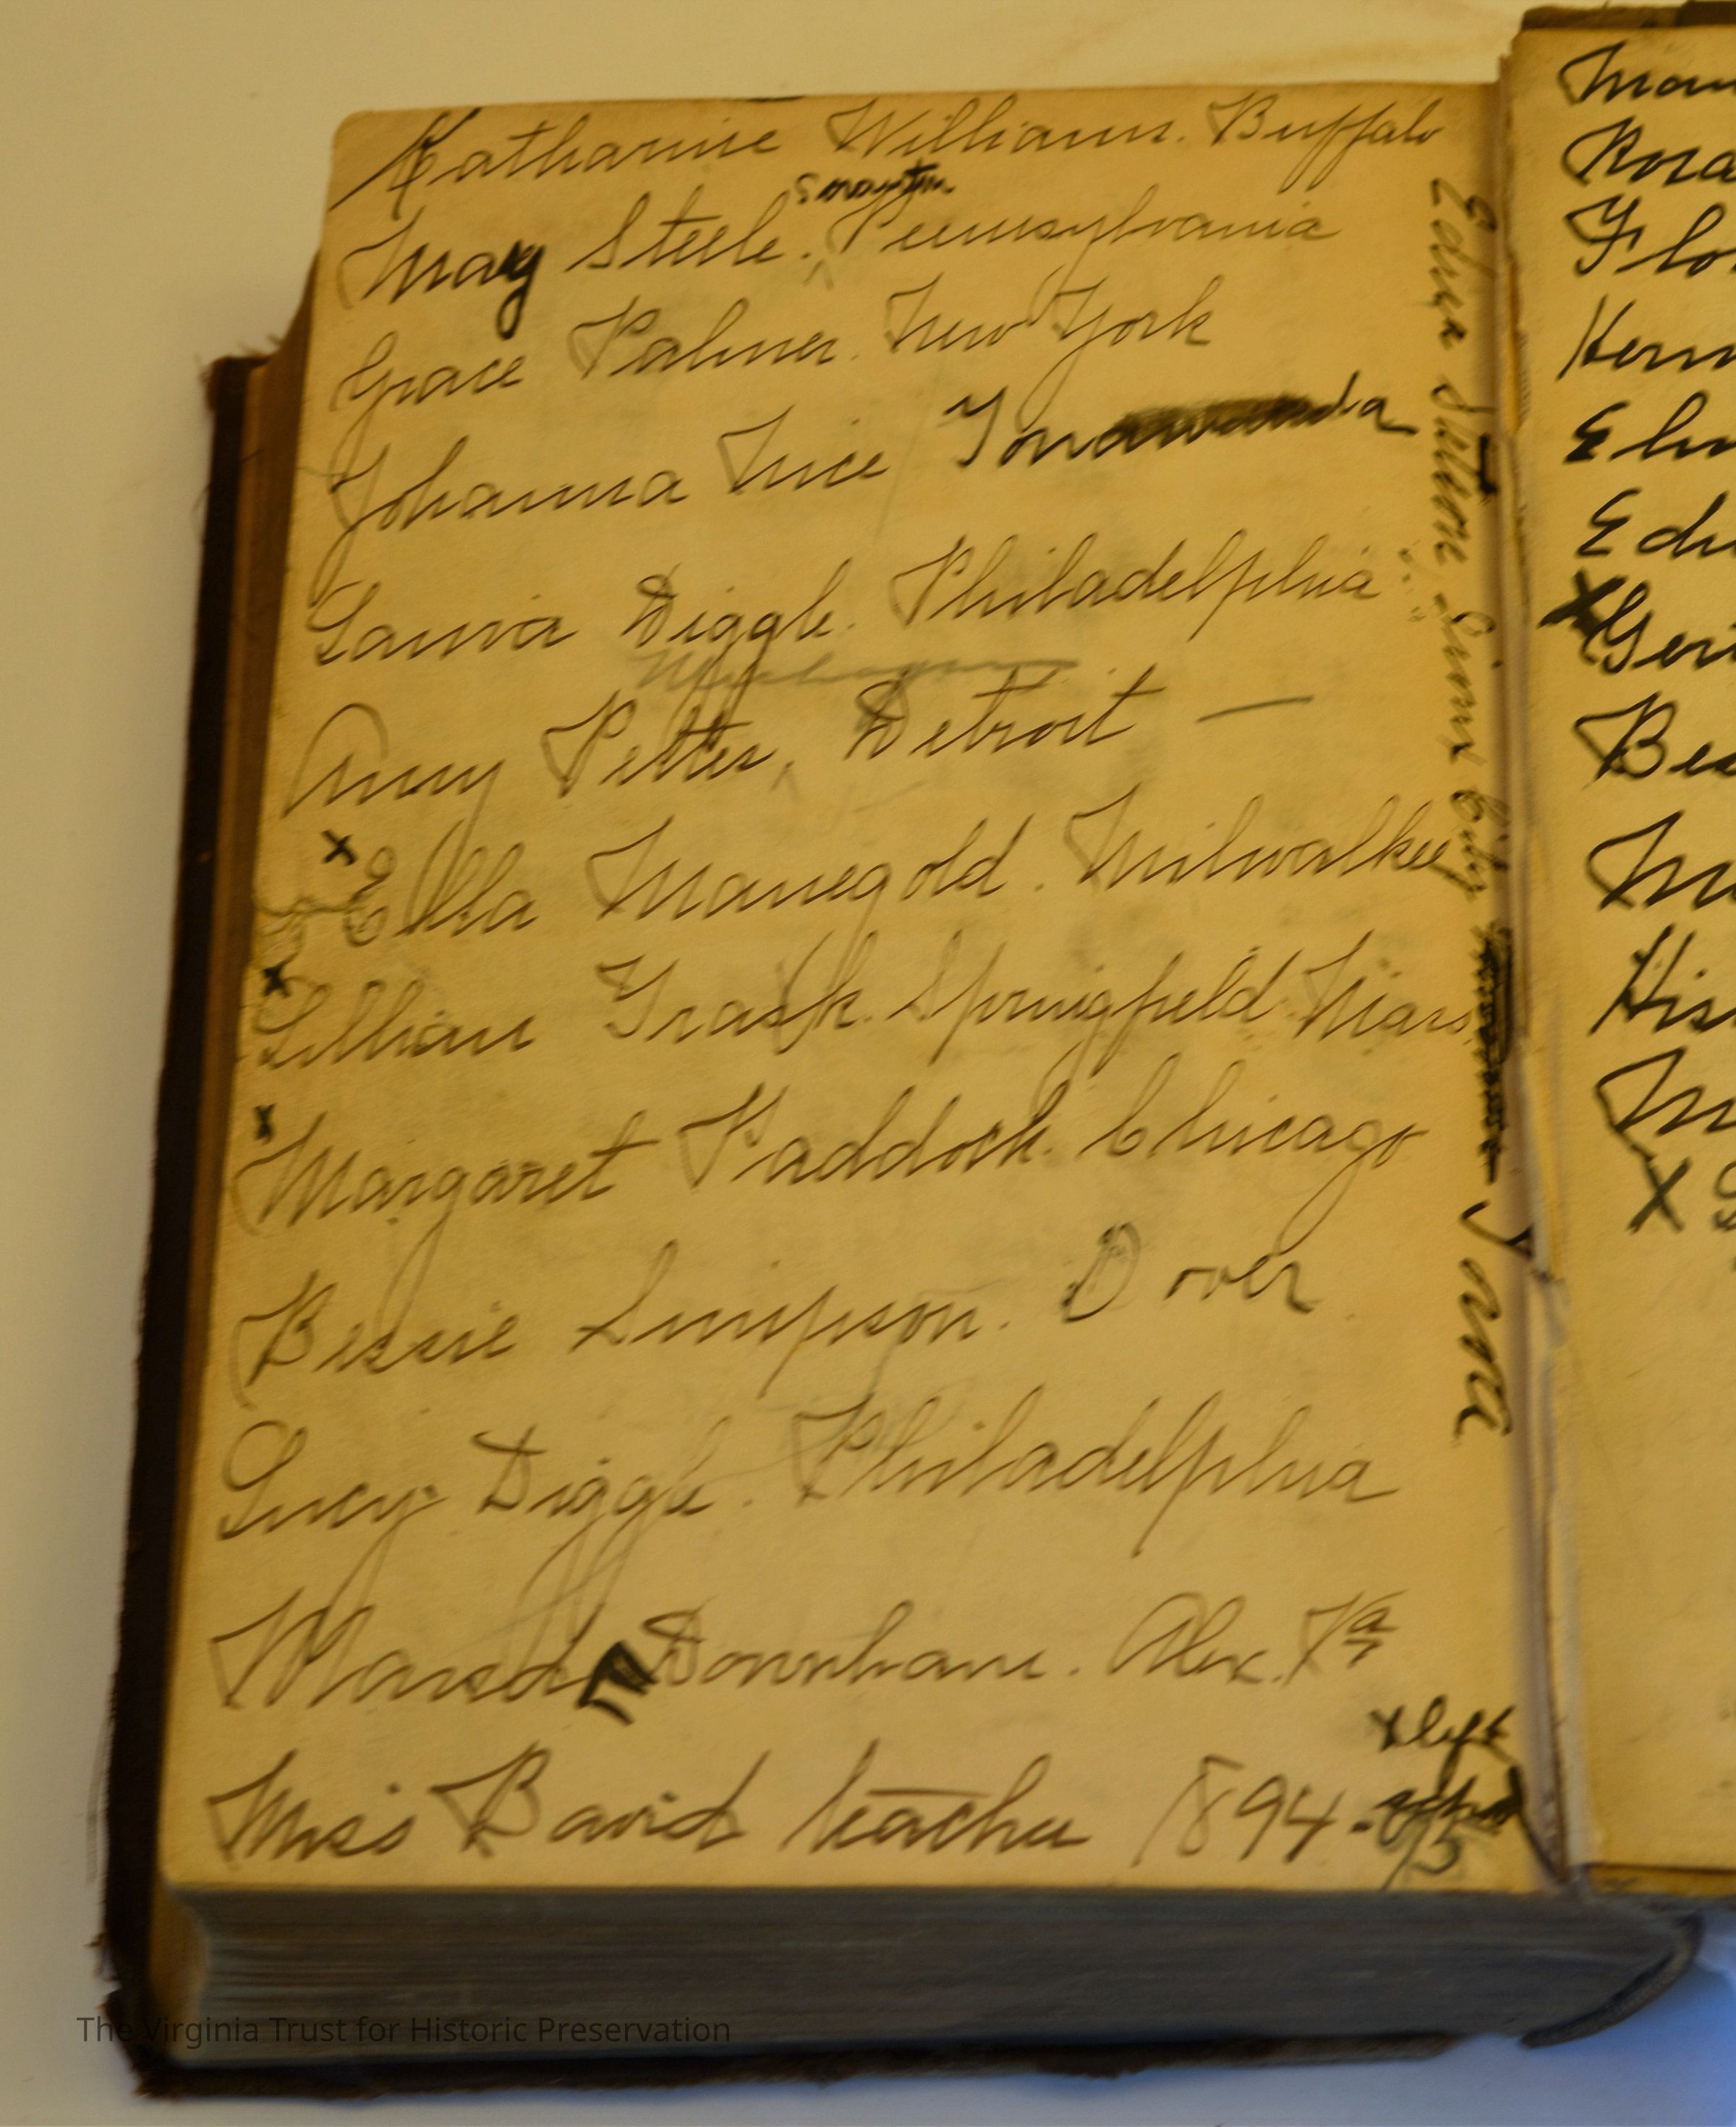 Katharine Williams. Buffalo
May Steele. Scranton Pennsylvania
Grace Palmer. New York
Johanna Tonawanda
Laura Diggle. Philadelphia
Amy Petter, Detroit —
x Ella Manegold. Milwalkee
x Lillian Trask. Springfield Mass
x Margaret Paddock. Chicago
Bessie Simpson. Dover
Lucy Diggle. Philadelphia
Maud Donnham. Alex. Va
x left
Miss Bavid teacher 1894-
95
Edna Stetson, Sioux City
Iowa
Rosa
Flo
x
x
The Virginia Trust for Historic Preservation